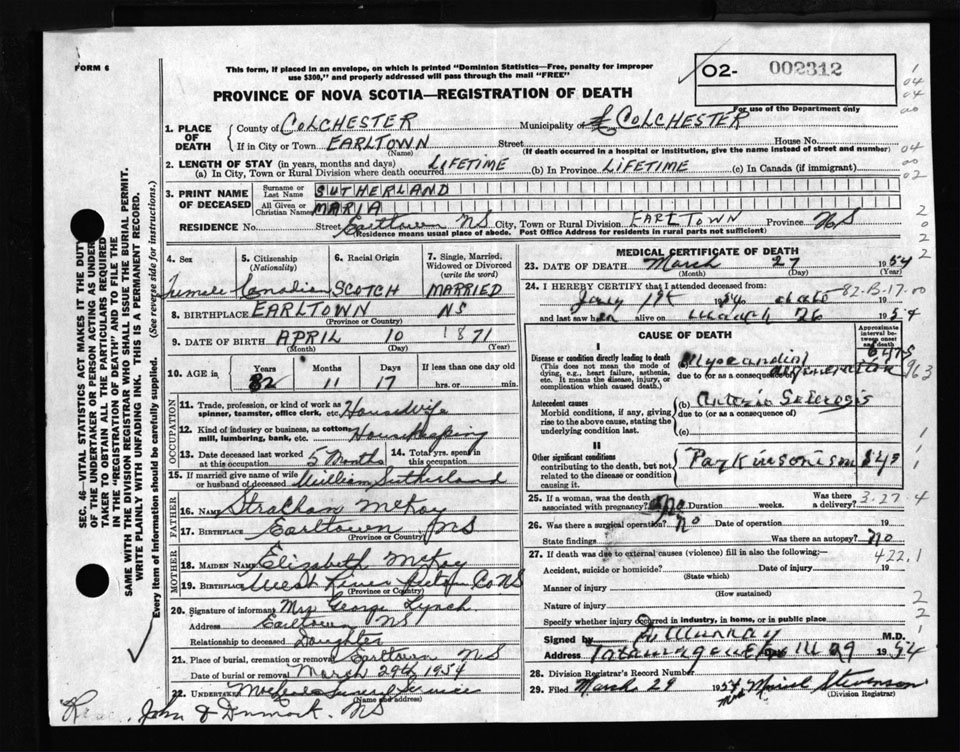 FORM 6
This form, if placed in an envelope, on which is printed "Dominion Statistics—Free, penalty for improper
use $300," and properly addressed will pass through the mail "FREE"
02- 002312
For use of the Department only
PROVINCE OF NOVA SCOTIA—REGISTRATION OF DEATH
1. PLACE OF DEATH
County of COLCHESTER Municipality of COLCHESTER
If in City or Town EARLTOWN Street House No.
(Name) (If death occurred in a hospital or institution, give the name instead of street and number)
2. LENGTH OF STAY (in years, months and days)
(a) In City, Town or Rural Division where death occurred LIFETIME (b) In Province LIFETIME (c) In Canada (if immigrant)
3. PRINT NAME OF DECEASED
Surname or Last Name SUTHERLAND
All Given or Christian Names MARIA
RESIDENCE No. Street Earltown NS City, Town or Rural Division EARLTOWN Province NS
(Residence means usual place of abode. Post Office Address for residents in rural parts not sufficient)
4. Sex Female
5. Citizenship (Nationality) Canadian
6. Racial Origin SCOTCH
7. Single, Married, Widowed or Divorced (write the word) MARRIED
8. BIRTHPLACE EARLTOWN NS
(Province or Country)
9. DATE OF BIRTH APRIL 10 1871
(Month) (Day) (Year)
10. AGE in Years 82 Months 11 Days 17 If less than one day old
hrs. or min.
OCCUPATION
11. Trade, profession, or kind of work as
spinner, teamster, office clerk, etc. Housewife
12. Kind of industry or business, as cotton
mill, lumbering, bank, etc. Housekeeping
13. Date deceased last worked
at this occupation 5 Months
14. Total yrs. spent in
this occupation
15. If married give name of wife
or husband of deceased William Sutherland
FATHER
16. Name Strathan McKay
17. Birthplace Earltown NS
(Province or Country)
MOTHER
18. MAIDEN NAME Elizabeth McKay
19. BIRTHPLACE West River Pictou Co NS
(Province or Country)
20. Signature of informant Mrs George Lynch
Address Earltown NS
Relationship to deceased Daughter
21. Place of burial, cremation or removal Earltown NS
Date of burial or removal March 29th, 1954
22. UNDERTAKER Funeral Service
(Name and address)
MEDICAL CERTIFICATE OF DEATH
23. DATE OF DEATH March 27 1954
(Month) (Day) (Year)
24. I HEREBY CERTIFY that I attended deceased from:
1954
and last saw her alive on March 26 1954
CAUSE OF DEATH
Approximate interval between onset and death
I
Disease or condition directly leading to death
(This does not mean the mode of
dying, e.g., heart failure, asthenia,
etc. It means the disease, injury, or
complication which caused death.)
Myocardial degeneration
due to (or as a consequence of)
Antecedent causes
Morbid conditions, if any, giving
rise to the above cause, stating the
underlying condition last.
(b)
due to (or as a consequence of)
(c)
II
Other significant conditions
contributing to the death, but not
related to the disease or condition
causing it.
Parkinsonism
25. If a woman, was the death
associated with pregnancy? No Duration weeks. Was there
a delivery?
3-27-4
26. Was there a surgical operation? No Date of operation 19
State findings Was there an autopsy? No
27. If death was due to external causes (violence) fill in also the following:—
422.1
Accident, suicide or homicide? Date of injury 19
(State which)
Manner of injury
(How sustained)
Nature of injury
Specify whether injury occurred in industry, in home, or in public place
Signed by Murray M.D.
Address Tatamagouche 29 1954
28. Division Registrar's Record Number
29. Filed March 29 1954 Mrs Muriel Stevenson
(Division Registrar)
SEC. 46—VITAL STATISTICS ACT MAKES IT THE DUTY
OF THE UNDERTAKER OR PERSON ACTING AS UNDER-
TAKER TO OBTAIN ALL THE PARTICULARS REQUIRED
IN THE "REGISTRATION OF DEATH" AND TO FILE THE
SAME WITH THE DIVISION REGISTRAR WHO SHALL ISSUE THE BURIAL PERMIT.
WRITE PLAINLY WITH UNFADING INK. THIS IS A PERMANENT RECORD.
Every item of Information should be carefully supplied. (See reverse side for instructions.)